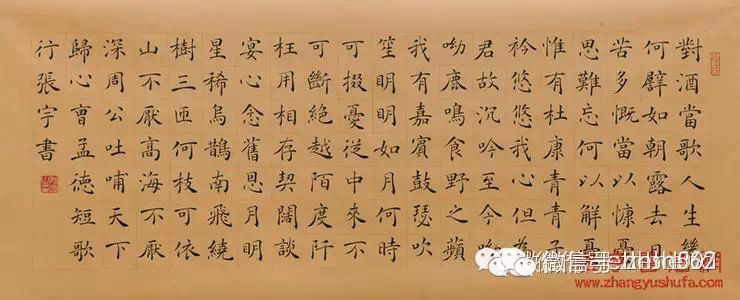 對酒當歌人生幾
何譬如朝露去日
苦多慨當以慷憂
思難忘何以解憂
惟有杜康青青子
衿悠悠我心但為
君故沉吟至今呦
呦鹿鳴食野之蘋
我有嘉賓鼓瑟吹
笙明明如月何時
可掇憂從中來不
可斷絕越陌度阡
枉用相存契闊談
宴心念舊恩月明
星稀烏鵲南飛繞
樹三匝何枝可依
山不厭高海不厭
深周公吐哺天下
歸心曹孟德短歌
行張宇書
微信号
www.zhangyushufa.com